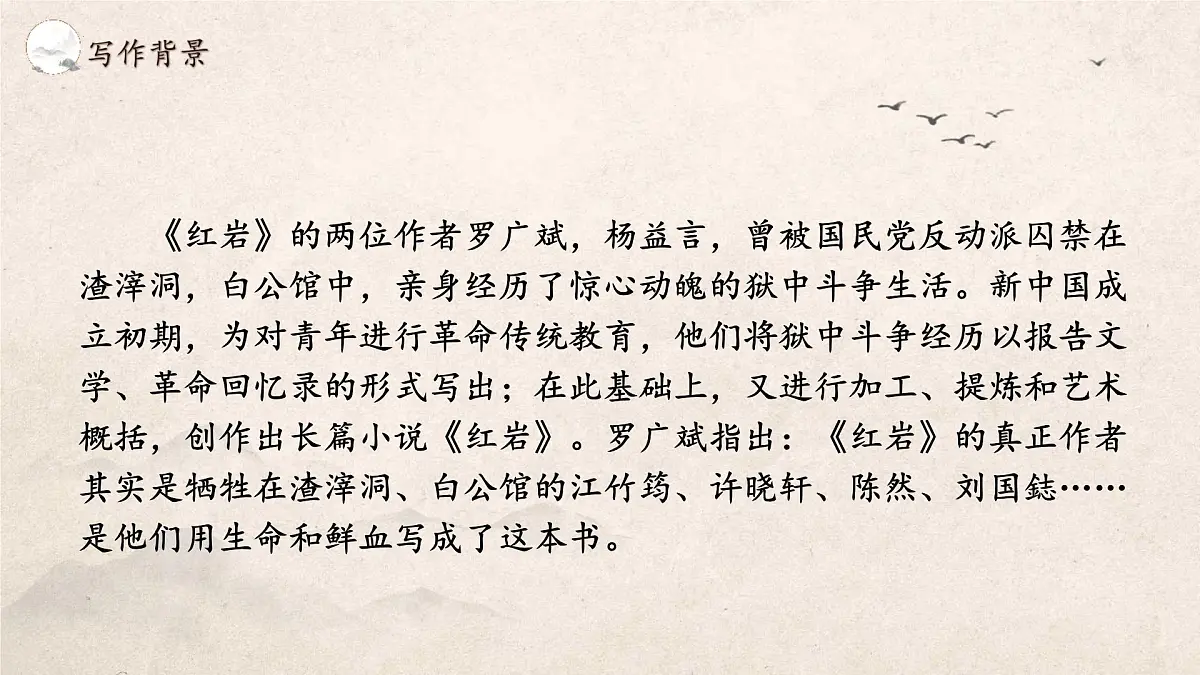 写作背景
《红岩》的两位作者罗广斌，杨益言，曾被国民党反动派囚禁在
渣滓洞，白公馆中，亲身经历了惊心动魄的狱中斗争生活。新中国成
立初期，为对青年进行革命传统教育，他们将狱中斗争经历以报告文
学、革命回忆录的形式写出；在此基础上，又进行加工、提炼和艺术
概括，创作出长篇小说《红岩》。罗广斌指出：《红岩》的真正作者
其实是牺牲在渣滓洞、白公馆的江竹筠、许晓轩、陈然、刘国鋕……
是他们用生命和鲜血写成了这本书。